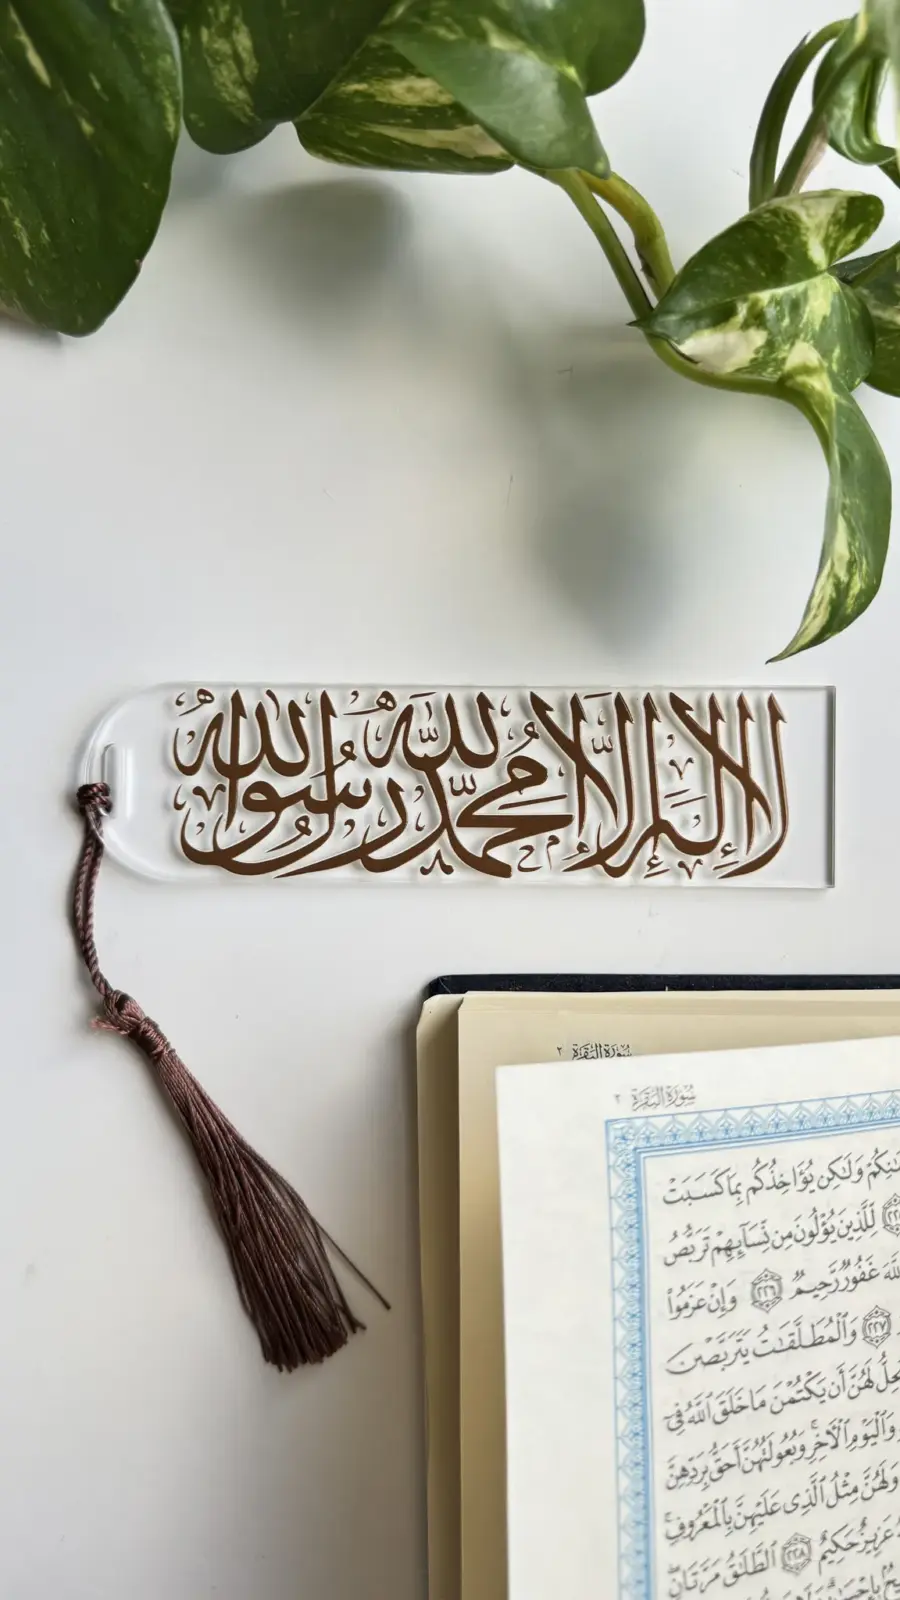 لا إله إلا الله محمد رسول الله
سورة البقرة ٢
سورة البقرة ٢
وَلَٰكِن يُؤَاخِذُكُم بِمَا كَسَبَتْ
لِّلَّذِينَ يُؤْلُونَ مِن نِّسَآئِهِمْ تَرَبُّصُ
غَفُورٌ رَّحِيمٌ ٢٢٦ وَإِنْ عَزَمُوا۟
٢٢٧ وَٱلْمُطَلَّقَٰتُ يَتَرَبَّصْنَ
لَهُنَّ أَن يَكْتُمْنَ مَا خَلَقَ ٱللَّهُ فِىٓ
وَٱلْيَوْمِ ٱلْءَاخِرِ وَبُعُولَتُهُنَّ أَحَقُّ بِرَدِّهِنَّ
وَلَهُنَّ مِثْلُ ٱلَّذِى عَلَيْهِنَّ بِٱلْمَعْرُوفِ
عَزِيزٌ حَكِيمٌ ٢٢٨ ٱلطَّلَٰقُ مَرَّتَانِ